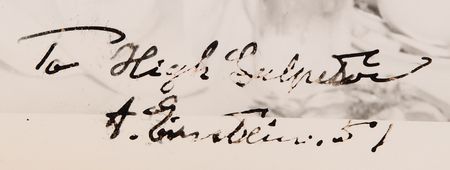 To High
A. Einstein. 51